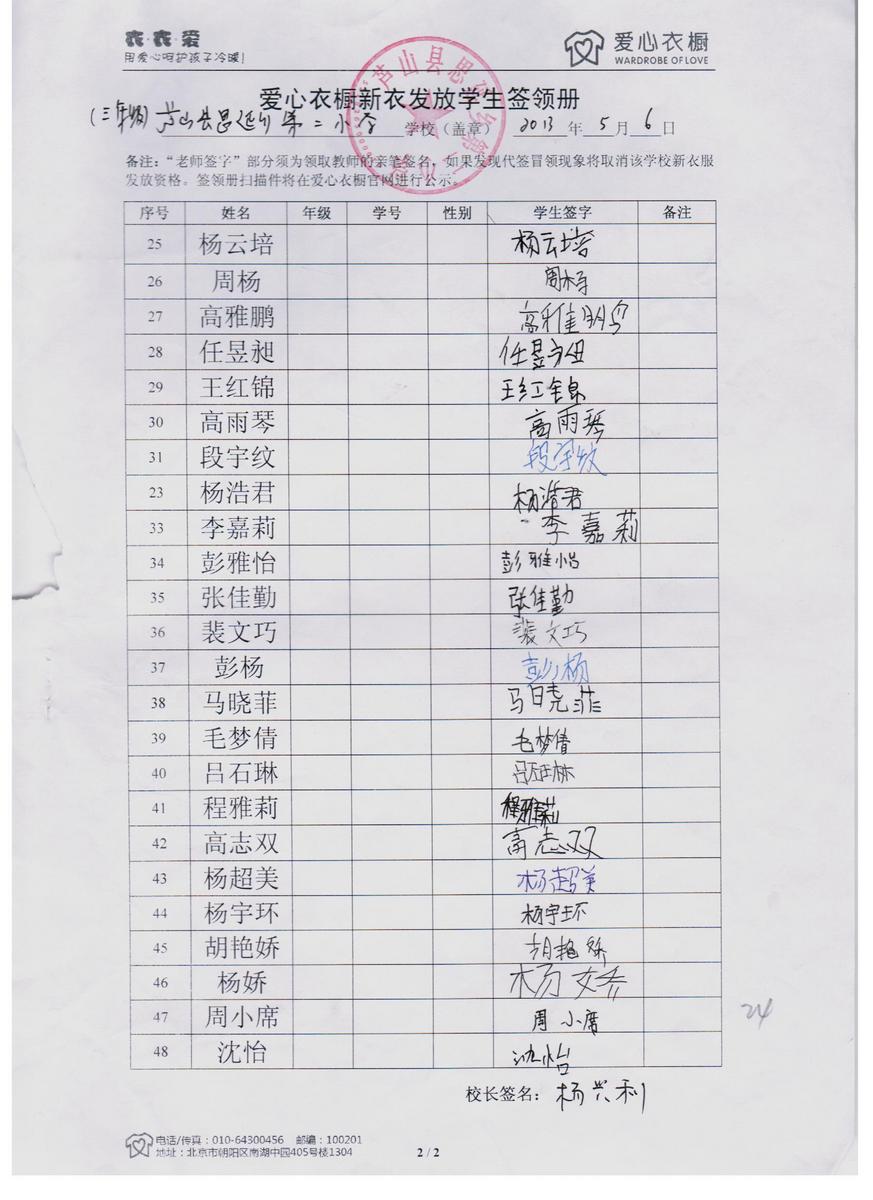 衣·衣·爱
用爱心呵护孩子冷暖!
爱心衣橱
WARDROBE OF LOVE
爱心衣橱新衣发放学生签领册
(三年级) 芦山县思延乡第二小学 学校（盖章） 2013 年 5 月 6 日
备注：“老师签字”部分须为领取教师的亲笔签名，如果发现代签冒领现象将取消该学校新衣服
发放资格。签领册扫描件将在爱心衣橱官网进行公示。
序号 姓名 年级 学号 性别 学生签字 备注
25 杨云培 杨云培
26 周杨 周杨
27 高雅鹏 高雅鹏
28 任昱昶 任昱
29 王红锦 王红锦
30 高雨琴 高雨琴
31 段宇纹 段宇纹
23 杨浩君 杨浩君
33 李嘉莉 李嘉莉
34 彭雅怡 彭雅怡
35 张佳勤 张佳勤
36 裴文巧 裴文巧
37 彭杨 彭杨
38 马晓菲 马晓菲
39 毛梦倩 毛梦倩
40 吕石琳 吕石琳
41 程雅莉 程雅莉
42 高志双 高志双
43 杨超美 杨超美
44 杨宇环 杨宇环
45 胡艳娇 胡艳娇
46 杨娇 杨娇
47 周小席 周小席
48 沈怡 沈怡
24
校长签名： 杨兴利
电话/传真：010-64300456 邮编：100201
地址：北京市朝阳区南湖中园405号楼1304
2 / 2